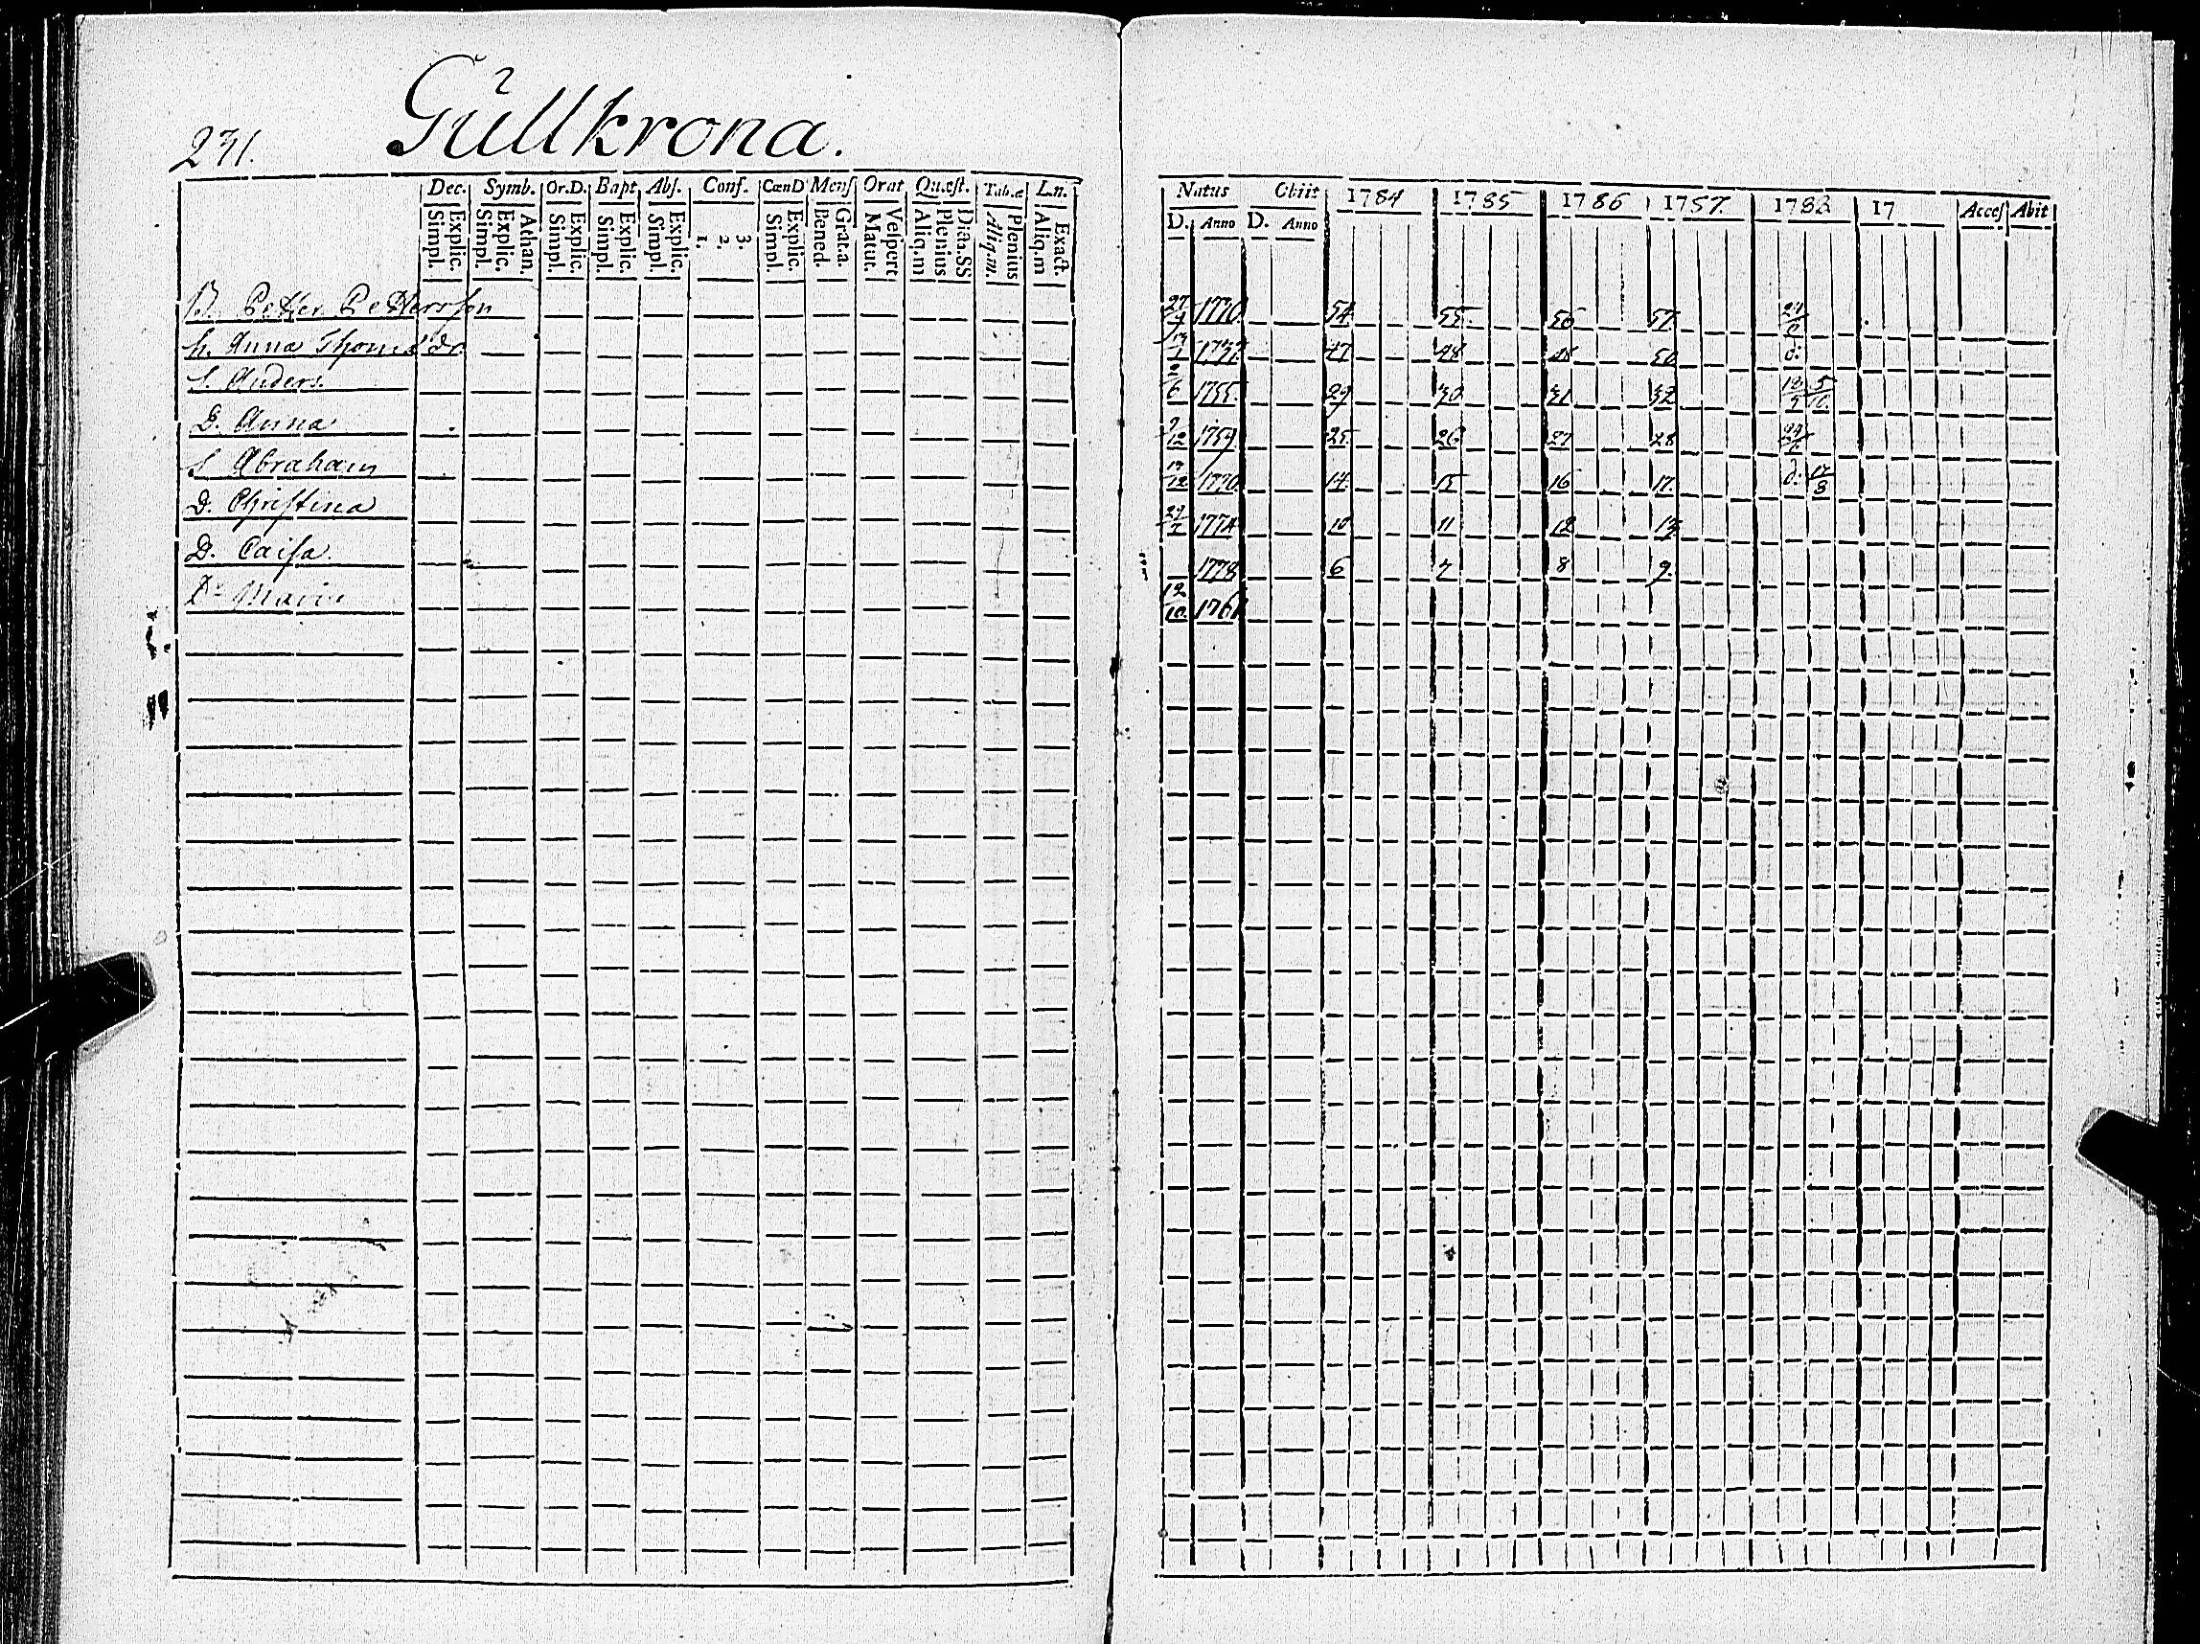 231. Gullkrona.
Dec. Symb. Or.D. Bapt Abs. Conf. CœnD Mens Orat Quæst. Tab.æ Ln.
Explic. Simpl. Athan. Explic. Simpl. Explic. Simpl. Explic. Simpl. Explic. Simpl. 3. 2. 1. Explic. Simpl. Grat.a. Bened. Vespert Matut. Dicta.SS Plenius Aliq.m Plenius Aliq.m. Exact. Aliq.m
B. Petter Pettersson
h. Anna Thomas dr.
S. Anders.
D. Anna
S. Abraham
D. Christina
D. Caisa.
Maria
Natus Obiit 1784 1785 1786 1757. 1788 17 Acces Abit
D. Anno D. Anno
54 55. 56 57
47 48 50
6 1755. 29 30 31 32
12 1759 25. 26 27 28
12 1770. 14. 15 16 17. d: 17/8
29/7 1774 10 11 12 13
1778 6 7 8 9.
12/10. 1761